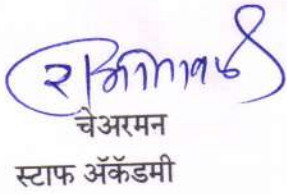 चेअरमन
स्टाफ अॅकॅडमी